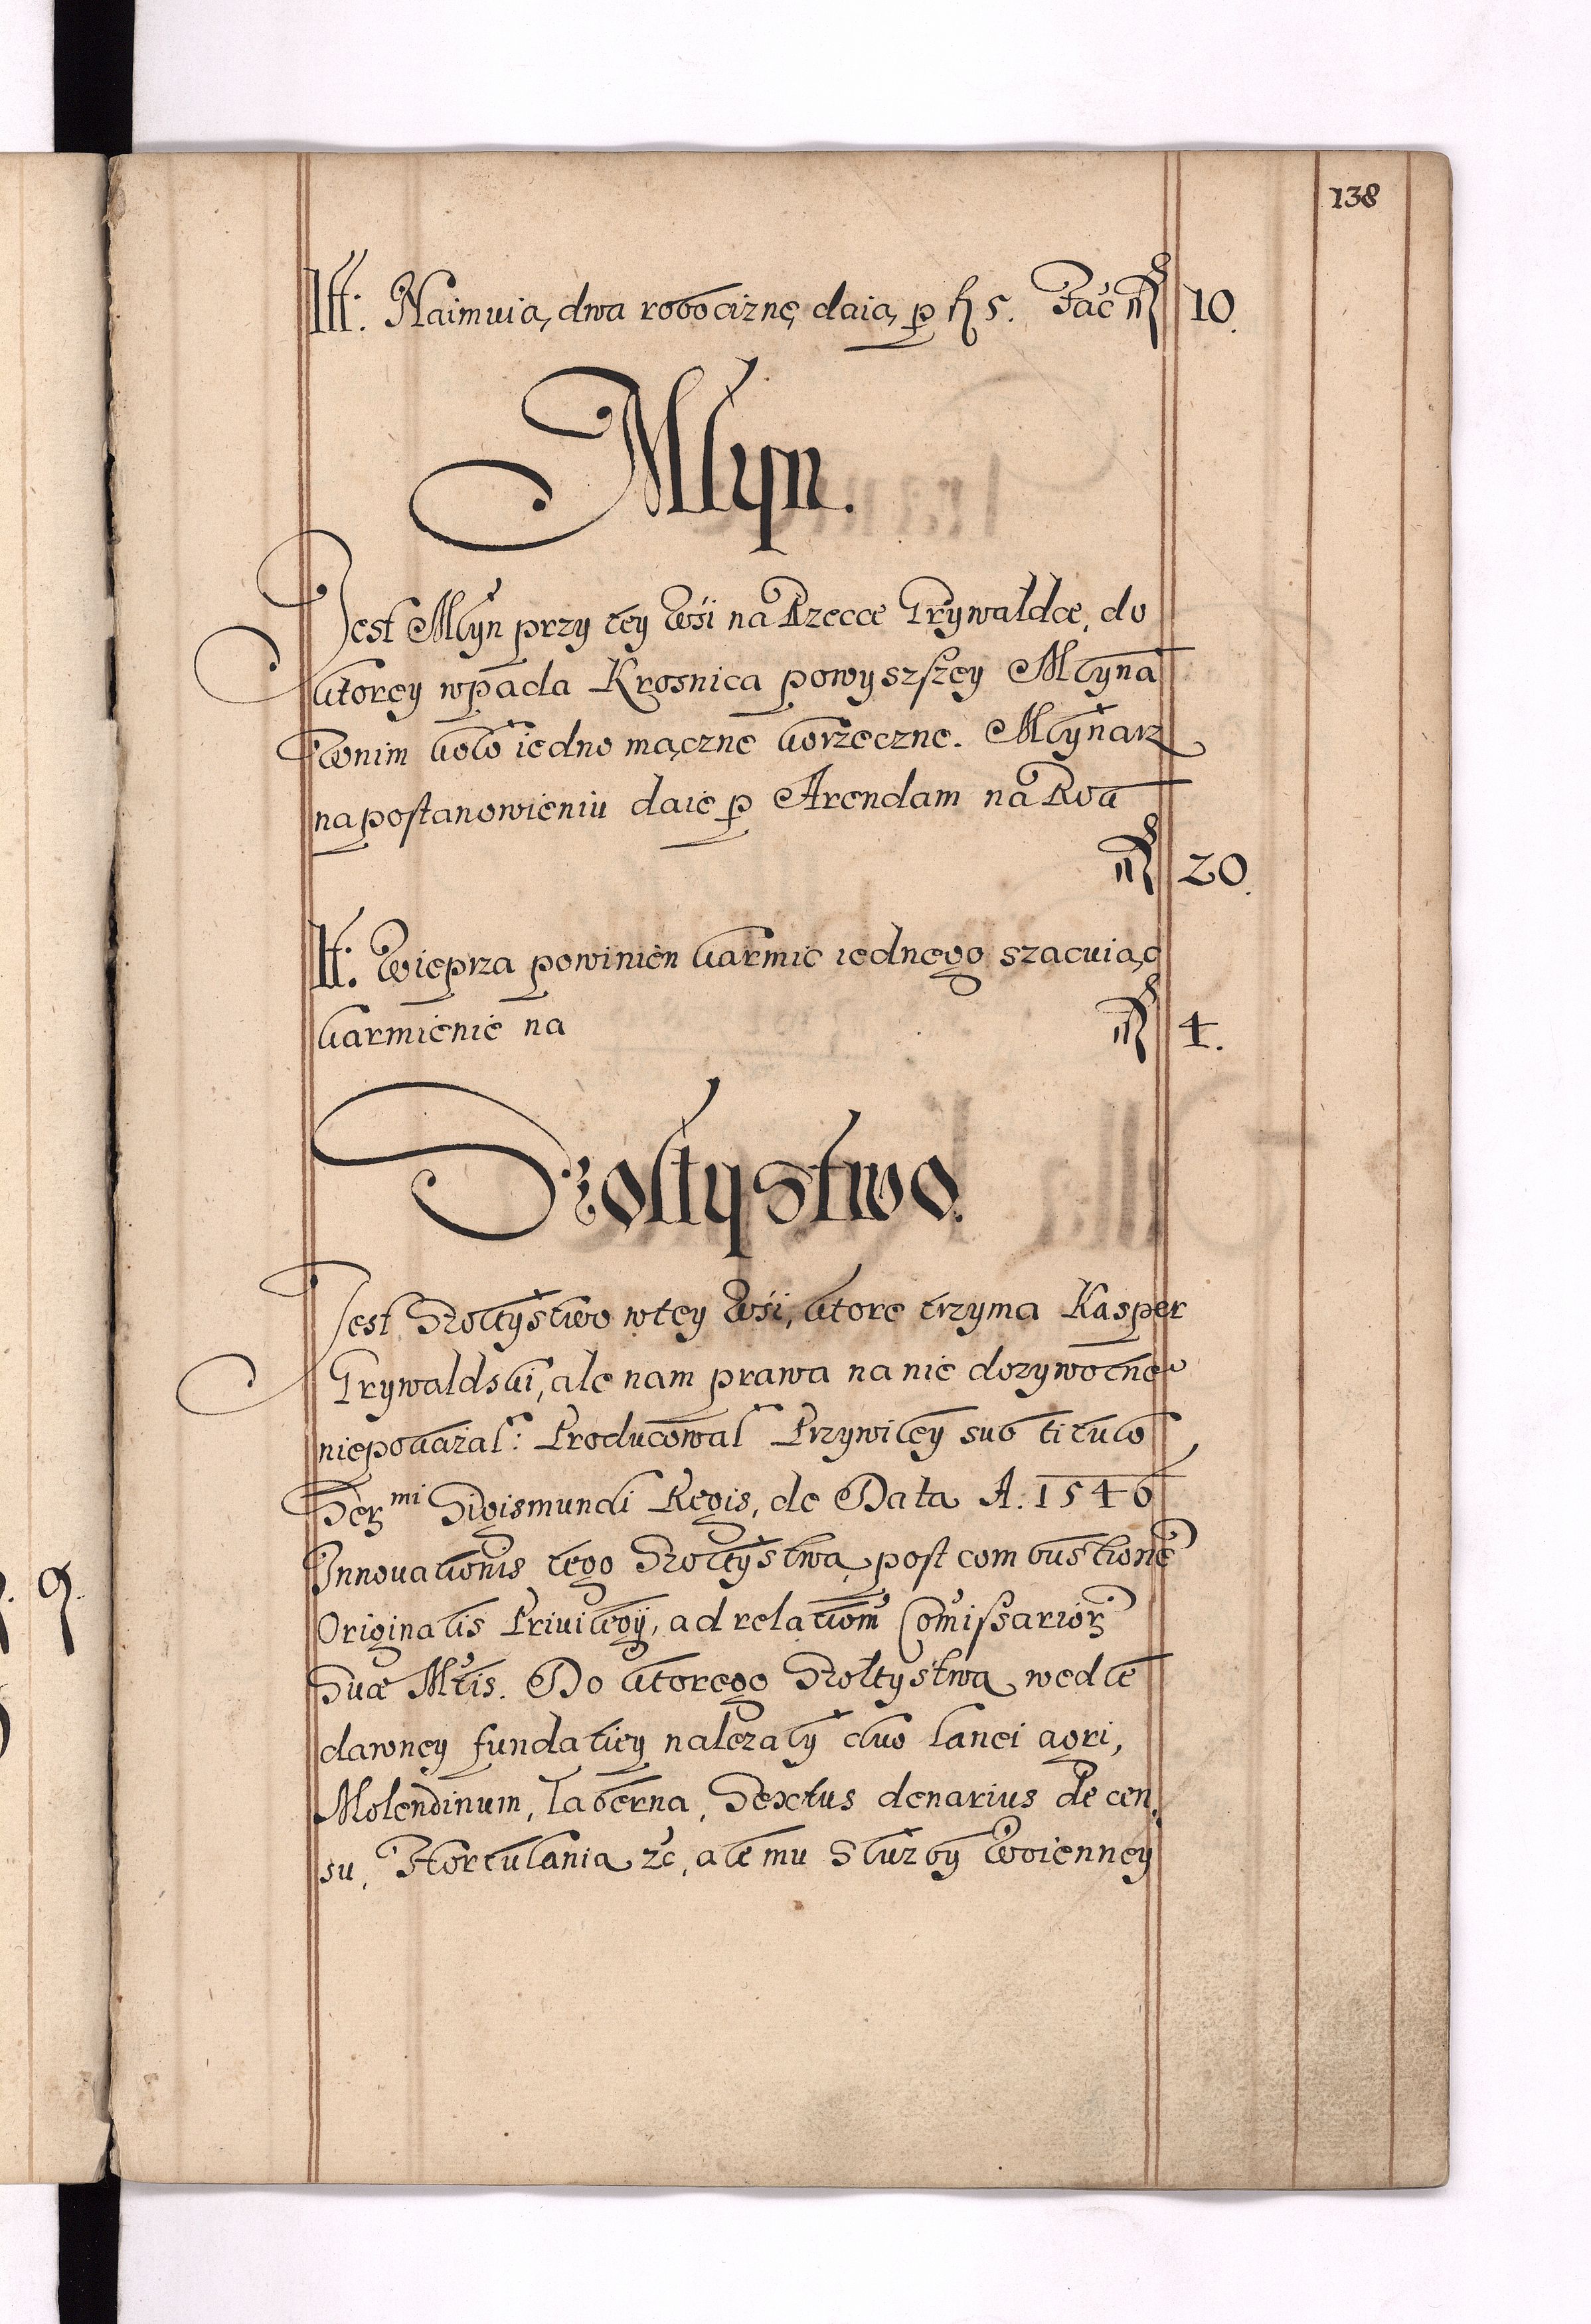 138
It: Naimuią dwa robociznę daią p fl 5. Fać mrc 10.
Młyn.
Jest Młyn przy tey Wsi na Rzecce Grywałdce, do
ktorey wpada Krosnica powyszszey Młyna
Wonim koło iedno mączne korzeczne. Młynarz
na postanowieniu daie p Arendam na Rok
mrc 20.
It: Wieprza powinien karmic iednego szacuiąc
karmienie na mrc 4.
Szołtystwo.
Jest Szołtystwo w tey Wsi, ktore trzyma Kasper
Grywaldski, ale nam prawa na nie dozywotne
niepokazał: Producował Przywiley sub titulo
Ser mi Sigismundi Regis, de Data A. 1546
Innovationis tego Szołtystwa, post combustionē
Originalis Privilegij, ad relationē Comissarior
Suæ Mtis. Do ktorego Szołtystwa wedle
dawney fundatiey nalezały duo lanei agri,
Molendinum, Taberna, Sextus denarius de cen
su, Hortulania &c, ale mu Sluzby Woienney